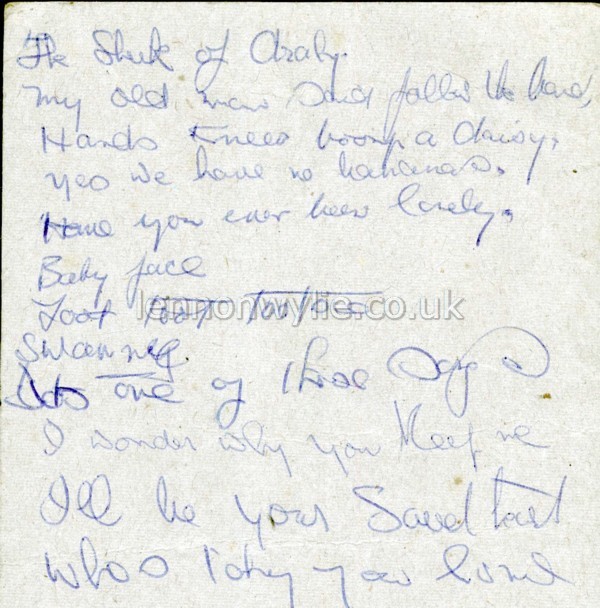 The Sheik of Araby.
My old man said follow the band,
Hands Knees boompa daisy.
Yes we have no bananas.
Have you ever been lonely.
Baby face
Toot toot tootsie
Swannee
Its one of those Days
I wonder why you Keep me
I'll be your Sweetheart
who's taking you home
lennonwylie.co.uk